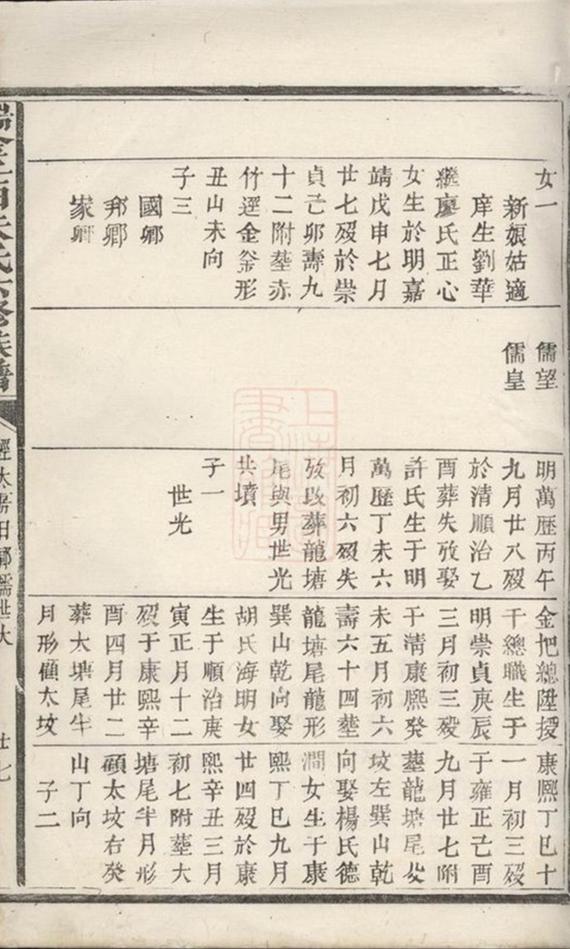 女一
新娘姑適
庠生劉華
繼廖氏正心
女生於明嘉
靖戊申七月
廿七歿於崇
貞己卯壽九
十二附塟赤
竹逕金釜形
丑山未向
子三
國卿
邦卿
家卿
儒望
儒皇
明萬歷丙午
九月廿八歿
於清順治乙
酉葬失攷娶
許氏生于明
萬歷丁未六
月初六歿失
攷改葬龍塘
尾與男世光
共墳
子一
世光
金把總陞授
千總職生于
明崇貞庚辰
三月初三歿
于淸康熙癸
未五月初六
壽六十四塟
龍塘尾龍形
巽山乾向娶
胡氏海明女
生于順治庚
寅正月十二
歿于康熙辛
酉四月廿二
葬大塘尾半
月形傾太坟
康熙丁巳十
一月初三歿
于雍正己酉
九月廿七附
塟龍塘尾父
坟左巽山乾
向娶楊氏德
澗女生于康
熙丁巳九月
廿四歿於康
熙辛丑三月
初七附塟大
塘尾半月形
碩太坟右癸
山丁向
子二
氏六修族譜
世大
廿七